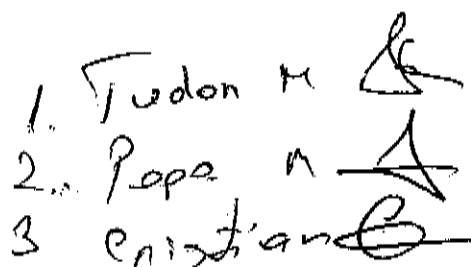 1. Tudor M
2. Popa M
3 Cristian